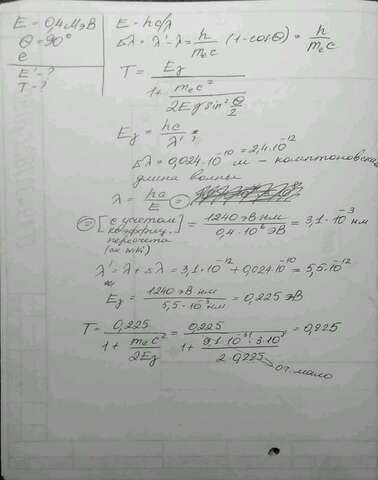 E - 0,4 МэВ
Θ = 90°
e
E' - ?
T - ?
E = hc/λ
Δλ = λ' - λ = h/mₑc (1 - cosΘ) = h/mₑc
T = Eγ / (1 + mₑc² / 2Eγ sin² Θ/2)
Eγ = hc/λ'
Δλ = 0,024·10⁻¹⁰ м - комптоновская = 2,4·10⁻¹²
длина волны
λ = hc/E =
= [с учетом коэффиц. пересчета] = 1240 эВ нм / 0,4·10⁶ эВ = 3,1·10⁻³ нм
λ' = λ + Δλ = 3,1·10⁻¹² + 0,024·10⁻¹⁰ = 5,5·10⁻¹²
Eγ = 1240 эВ нм / 5,5·10⁻³ нм = 0,225 эВ
T = 0,225 / (1 + mₑc² / 2Eγ) = 0,225 / (1 + 9,1·10⁻³¹·3·10⁸ / 2 0,225) = 0,225
оч. мало